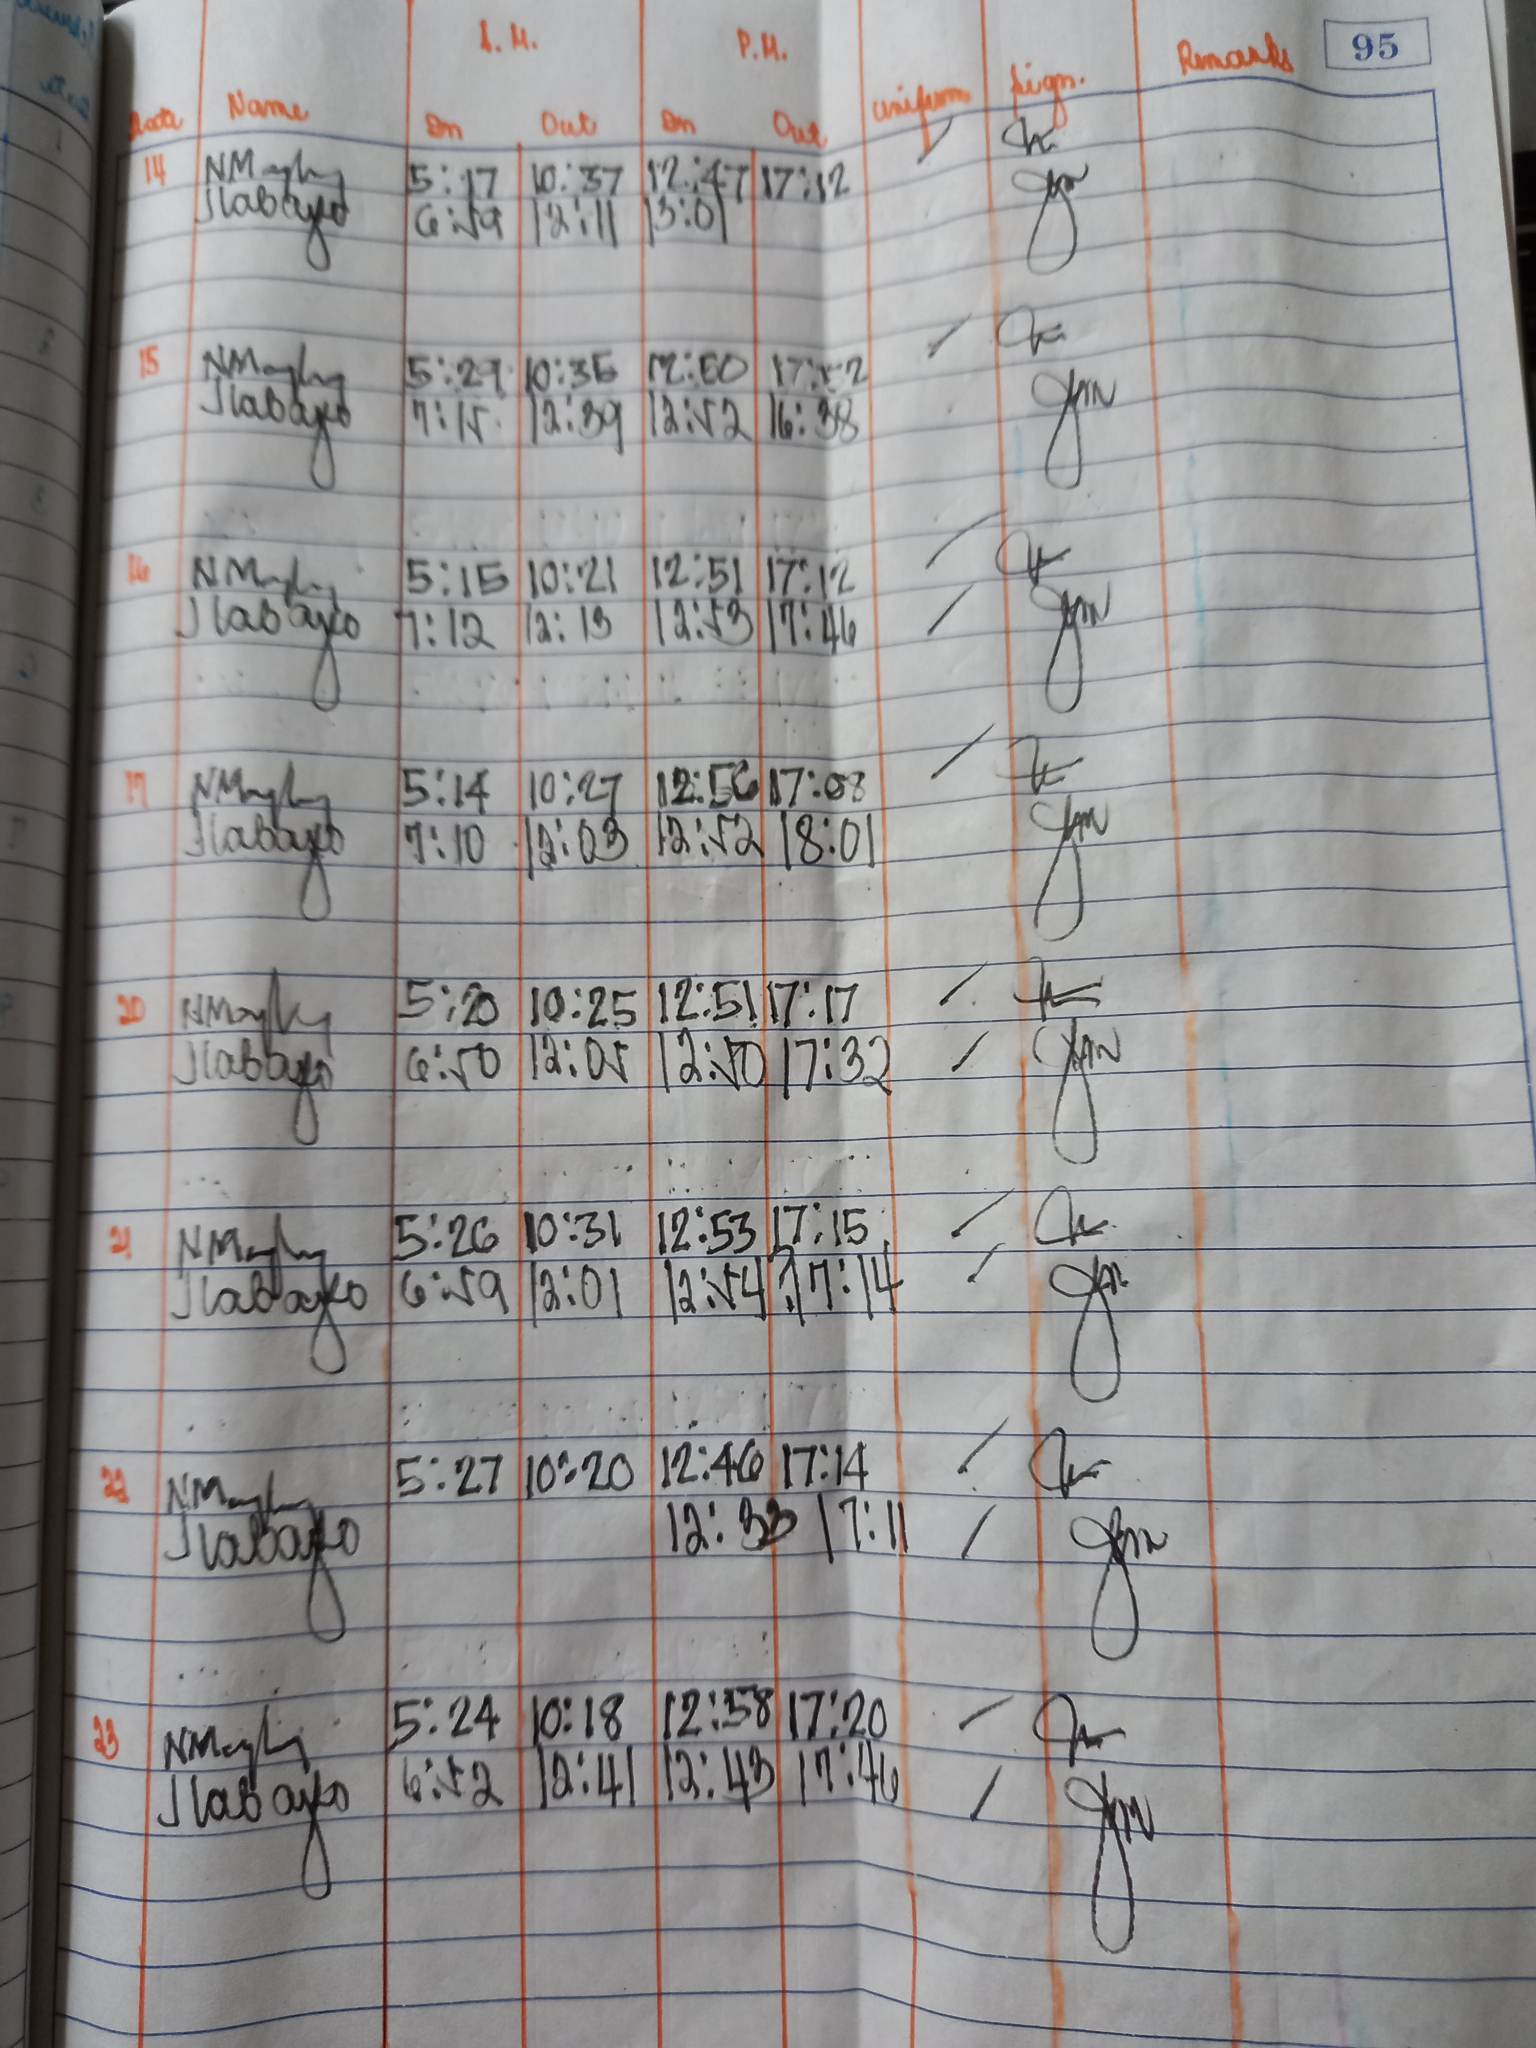 95
A.M. P.M.
Date Name In Out In Out Uniform Sign. Remarks
14 5:17 10:37 12:47 17:12
Jlabayko 6:59 12:11 13:01
15 5:29 10:35 12:50
Jlabayko 7:15 12:39 12:52 16:38
16 5:15 10:21 12:51 17:12
Jlabayko 7:12 12:13 12:53 17:46
17 5:14 10:27 12:56 17:08
Jlabayko 7:10 12:03 12:52 18:01
20 5:20 10:25 12:51 17:17
Jlabayko 6:50 12:05 12:50 17:32
21 5:26 10:31 12:53 17:15
Jlabayko 6:59 12:01 12:54 17:14
22 5:27 10:20 12:46 17:14
Jlabayko 12:33 17:11
23 5:24 10:18 12:58 17:20
Jlabayko 6:52 12:41 12:43 17:46